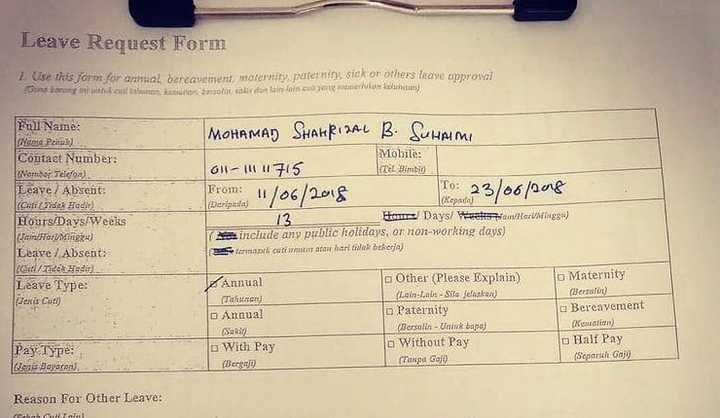 Leave Request Form
1. Use this form for annual, bereavement, maternity, paternity, sick or others leave approval
(Guna borang ini untuk cuti tahunan, kematian, bersalin, sakit dan lain-lain cuti yang memerlukan kelulusan)
Full Name: MOHAMAD SHAHRIZAL B. SUHAIMI
(Nama Penuh)
Contact Number: 011-11111715 Mobile:
(Nombor Telefon) (Tel. Bimbit)
Leave / Absent: From: 11/06/2018 To: 23/06/2018
(Cuti / Tidak Hadir) (Daripada) (Kepada)
Hours/Days/Weeks 13 Hours/ Days/ Weeks (Jam/Hari/Minggu)
(Jam/Hari/Minggu) ( include any public holidays, or non-working days)
Leave / Absent: termasuk cuti umum atau hari tidak bekerja)
(Cuti / Tidak Hadir)
Leave Type: Annual Other (Please Explain) Maternity
(Jenis Cuti) (Tahunan) (Lain-Lain - Sila jelaskan) (Bersalin)
Annual Paternity Bereavement
(Sakit) (Bersalin - Untuk bapa) (Kematian)
Pay Type: With Pay Without Pay Half Pay
(Jenis Bayaran) (Bergaji) (Tanpa Gaji) (Separuh Gaji)
Reason For Other Leave:
(Sebab Cuti Lain)